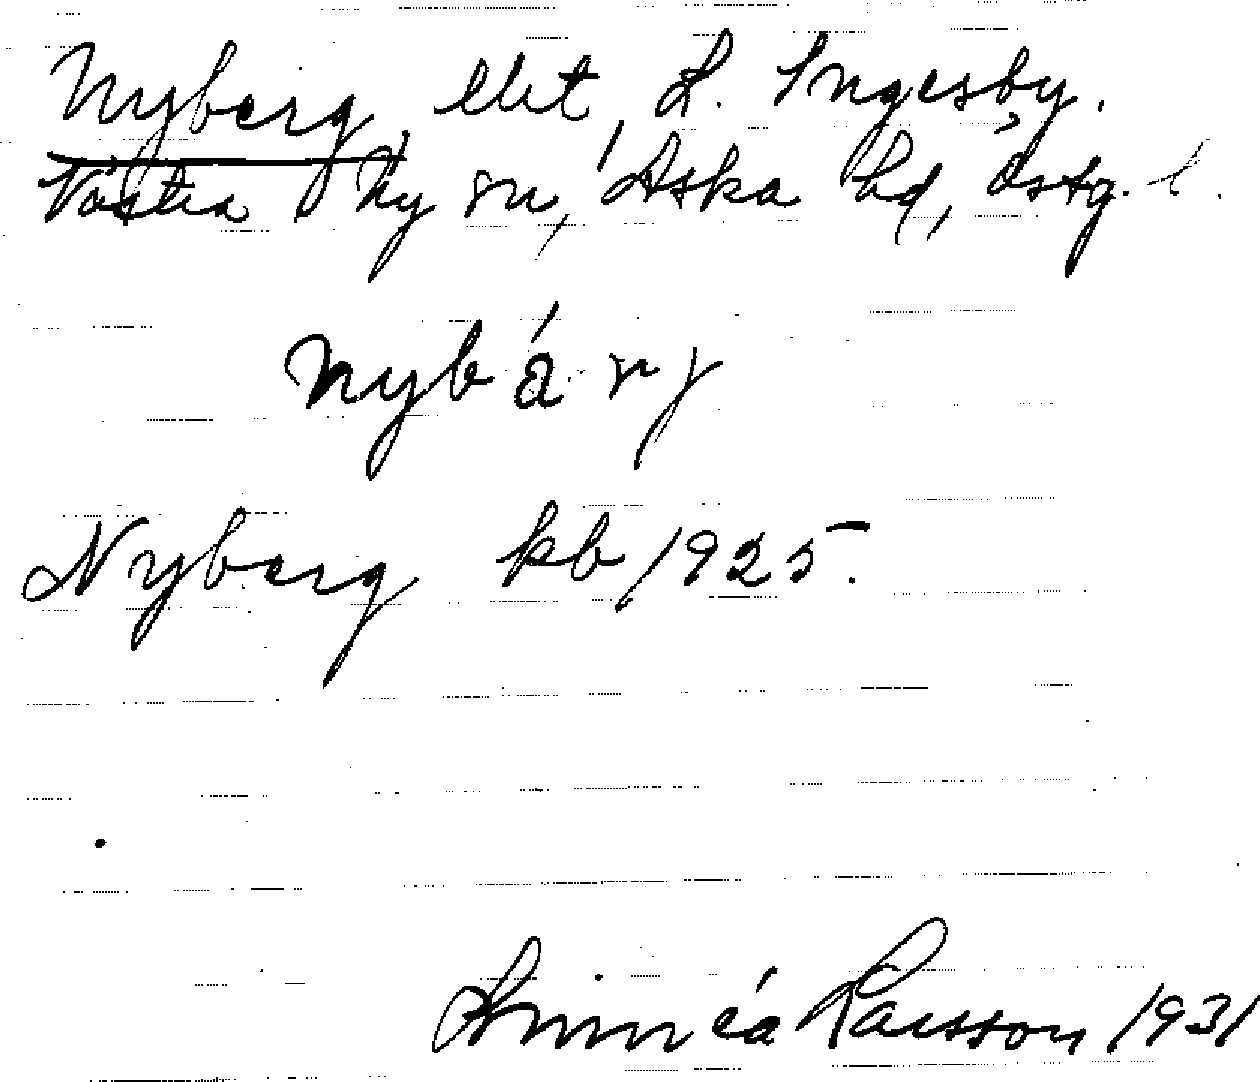 Nyberg, lht, L. Ingesby.
Västra Ny sn, Aska hd, Östg. l.
nybárj
Nyberg kb 1925.
Linnéa Larsson 1931